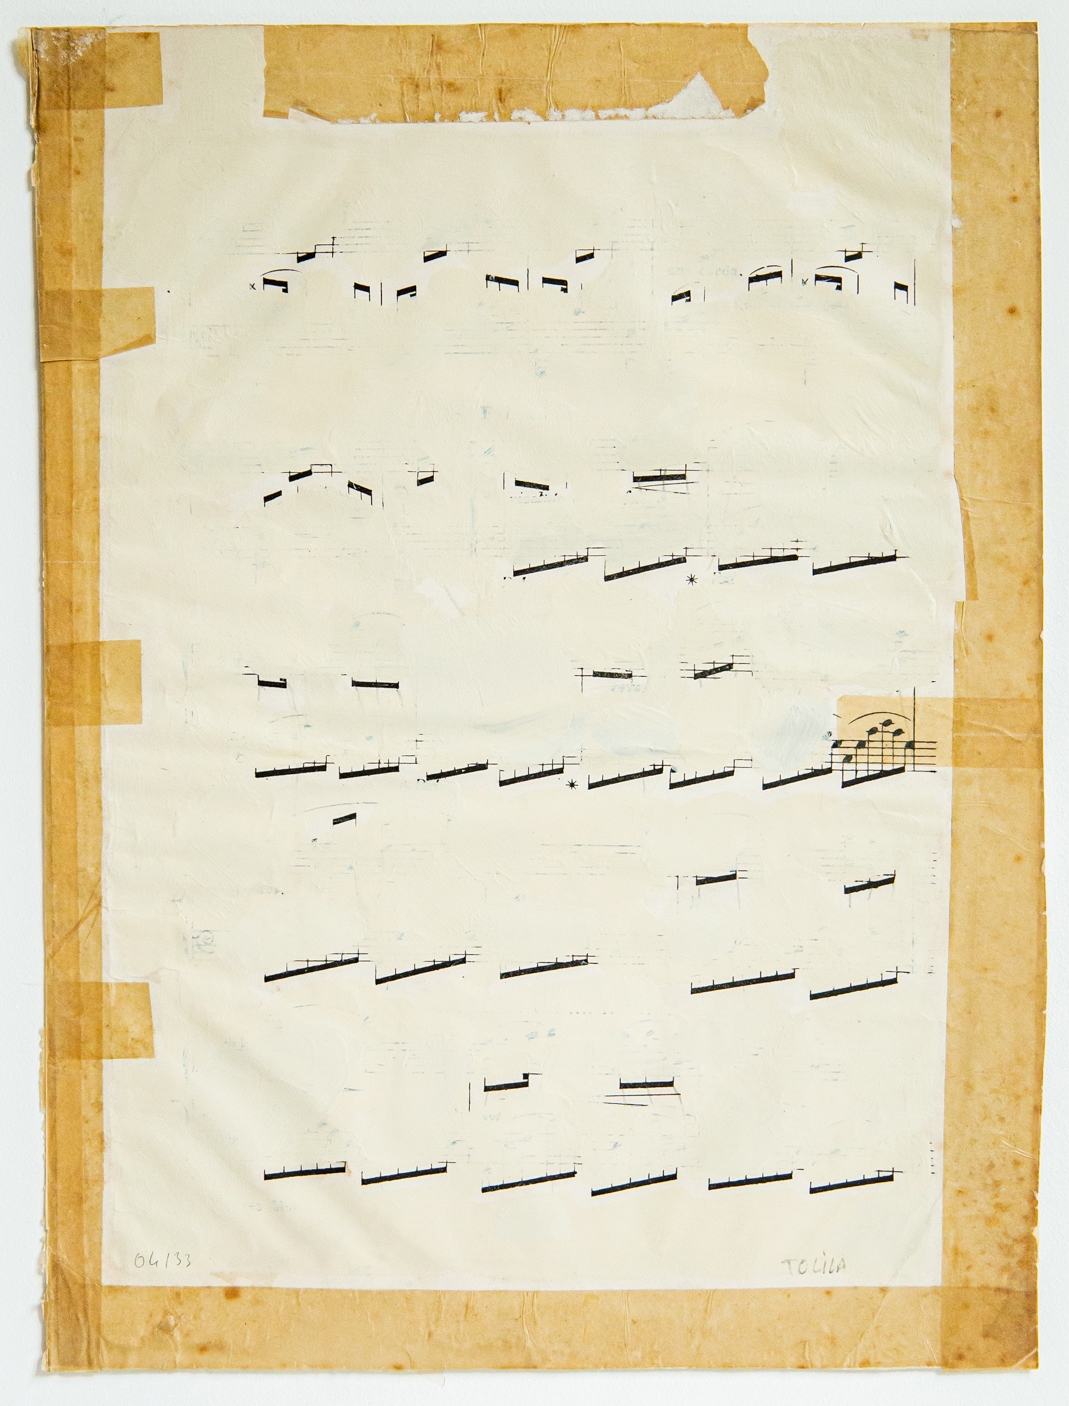 04/33
TOLILA